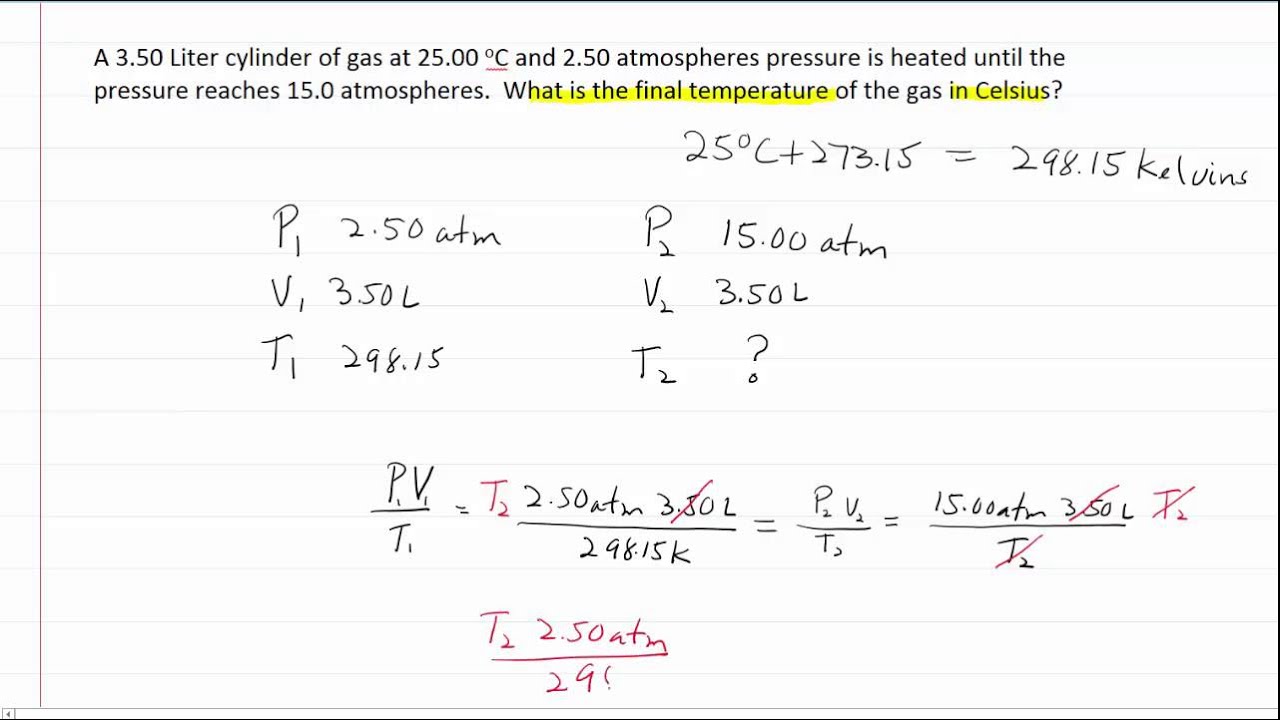 A 3.50 Liter cylinder of gas at 25.00 °C and 2.50 atmospheres pressure is heated until the
pressure reaches 15.0 atmospheres. What is the final temperature of the gas in Celsius?
25°C+273.15 = 298.15 Kelvins
P₁ 2.50 atm P₂ 15.00 atm
V₁ 3.50 L V₂ 3.50 L
T₁ 298.15 T₂ ?
P₁V₁/T₁ = T₂ 2.50atm 3.50 L/298.15K = P₂ V₂/T₂ = 15.00atm 3.50 L T₂/T₂
T₂ 2.50atm
29